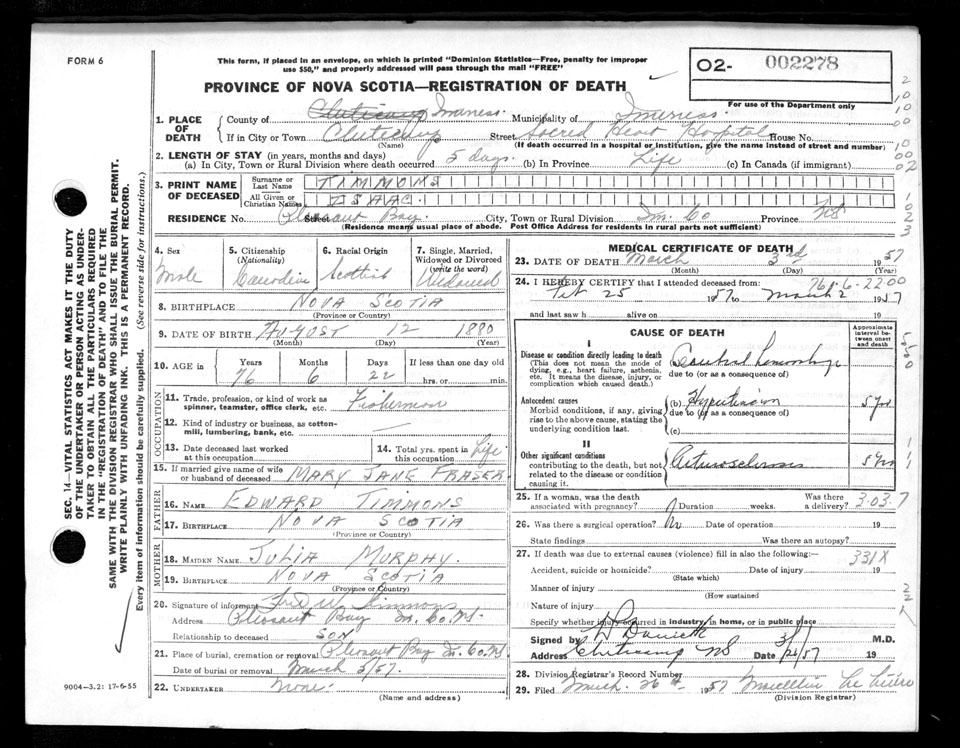 FORM 6
This form, if placed in an envelope, on which is printed "Dominion Statistics—Free, penalty for improper
use $50," and properly addressed will pass through the mail "FREE"
O2- 002278
For use of the Department only
PROVINCE OF NOVA SCOTIA—REGISTRATION OF DEATH
1. PLACE OF DEATH
County of Inverness. Municipality of Inverness.
If in City or Town Cheticamp Street Sacred Heart Hospital House No.
(Name) (If death occurred in a hospital or institution, give the name instead of street and number)
2. LENGTH OF STAY (in years, months and days)
(a) In City, Town or Rural Division where death occurred 5 days. (b) In Province Life (c) In Canada (if immigrant)
3. PRINT NAME OF DECEASED
Surname or Last Name TIMMONS
All Given or Christian Names ISAAC
RESIDENCE No. Street Pleasant Bay. City, Town or Rural Division In. Co Province NS
(Residence means usual place of abode. Post Office Address for residents in rural parts not sufficient)
4. Sex Male
5. Citizenship (Nationality) Canadian
6. Racial Origin Scottish
7. Single, Married, Widowed or Divorced (write the word) Widowed
8. BIRTHPLACE NOVA SCOTIA
(Province or Country)
9. DATE OF BIRTH AUGUST 12 1880
(Month) (Day) (Year)
10. AGE in Years 76 Months 6 Days 22 If less than one day old hrs. or min.
OCCUPATION
11. Trade, profession, or kind of work as spinner, teamster, office clerk, etc. Fisherman
12. Kind of industry or business, as cotton-mill, lumbering, bank, etc. —
13. Date deceased last worked at this occupation
14. Total yrs. spent in this occupation Life
15. If married give name of wife or husband of deceased MARY JANE FRASER
FATHER
16. NAME EDWARD TIMMONS
17. BIRTHPLACE NOVA SCOTIA
(Province or Country)
MOTHER
18. MAIDEN NAME JULIA MURPHY.
19. BIRTHPLACE NOVA SCOTIA
(Province or Country)
20. Signature of informant Fred W Timmons
Address Pleasant Bay In. Co. NS.
Relationship to deceased SON
21. Place of burial, cremation or removal Pleasant Bay In. Co. NS.
Date of burial or removal March 5/57.
22. UNDERTAKER None.
(NAME AND ADDRESS)
MEDICAL CERTIFICATE OF DEATH
23. DATE OF DEATH March 3rd 1957
(Month) (Day) (Year)
24. I HEREBY CERTIFY that I attended deceased from: 761-6-22-00
Feb 25 1957 to March 2 1957
and last saw h alive on 19
CAUSE OF DEATH
Approximate interval between onset and death
I
Disease or condition directly leading to death
(This does not mean the mode of dying, e.g., heart failure, asthenia, etc. It means the disease, injury, or complication which caused death.)
Cerebral hemorrhage
due to (or as a consequence of)
Antecedent causes
Morbid conditions, if any, giving rise to the above cause, stating the underlying condition last.
(b) Hypertension 5 yrs
due to (or as a consequence of)
(c)
II
Other significant conditions
contributing to the death, but not related to the disease or condition causing it.
Arteriosclerosis 5 yrs
25. If a woman, was the death associated with pregnancy? Duration weeks. Was there a delivery? 3-03-7
26. Was there a surgical operation? No Date of operation 19
State findings Was there an autopsy?
27. If death was due to external causes (violence) fill in also the following:— 331X
Accident, suicide or homicide? Date of injury 19
(State which)
Manner of injury
(How sustained
Nature of injury
Specify whether injury occurred in industry, in home, or in public place
Signed by M.D.
Address Cheticamp NS Date 3/26/57 19
28. Division Registrar's Record Number
29. Filed March 26th 1957
(Division Registrar)
SEC. 14—VITAL STATISTICS ACT MAKES IT THE DUTY
OF THE UNDERTAKER OR PERSON ACTING AS UNDER-
TAKER TO OBTAIN ALL THE PARTICULARS REQUIRED
IN THE "REGISTRATION OF DEATH" AND TO FILE THE
SAME WITH THE DIVISION REGISTRAR WHO SHALL ISSUE THE BURIAL PERMIT.
WRITE PLAINLY WITH UNFADING INK. THIS IS A PERMANENT RECORD.
Every item of information should be carefully supplied. (See reverse side for instructions.)
9004-3.2: 17-6-55